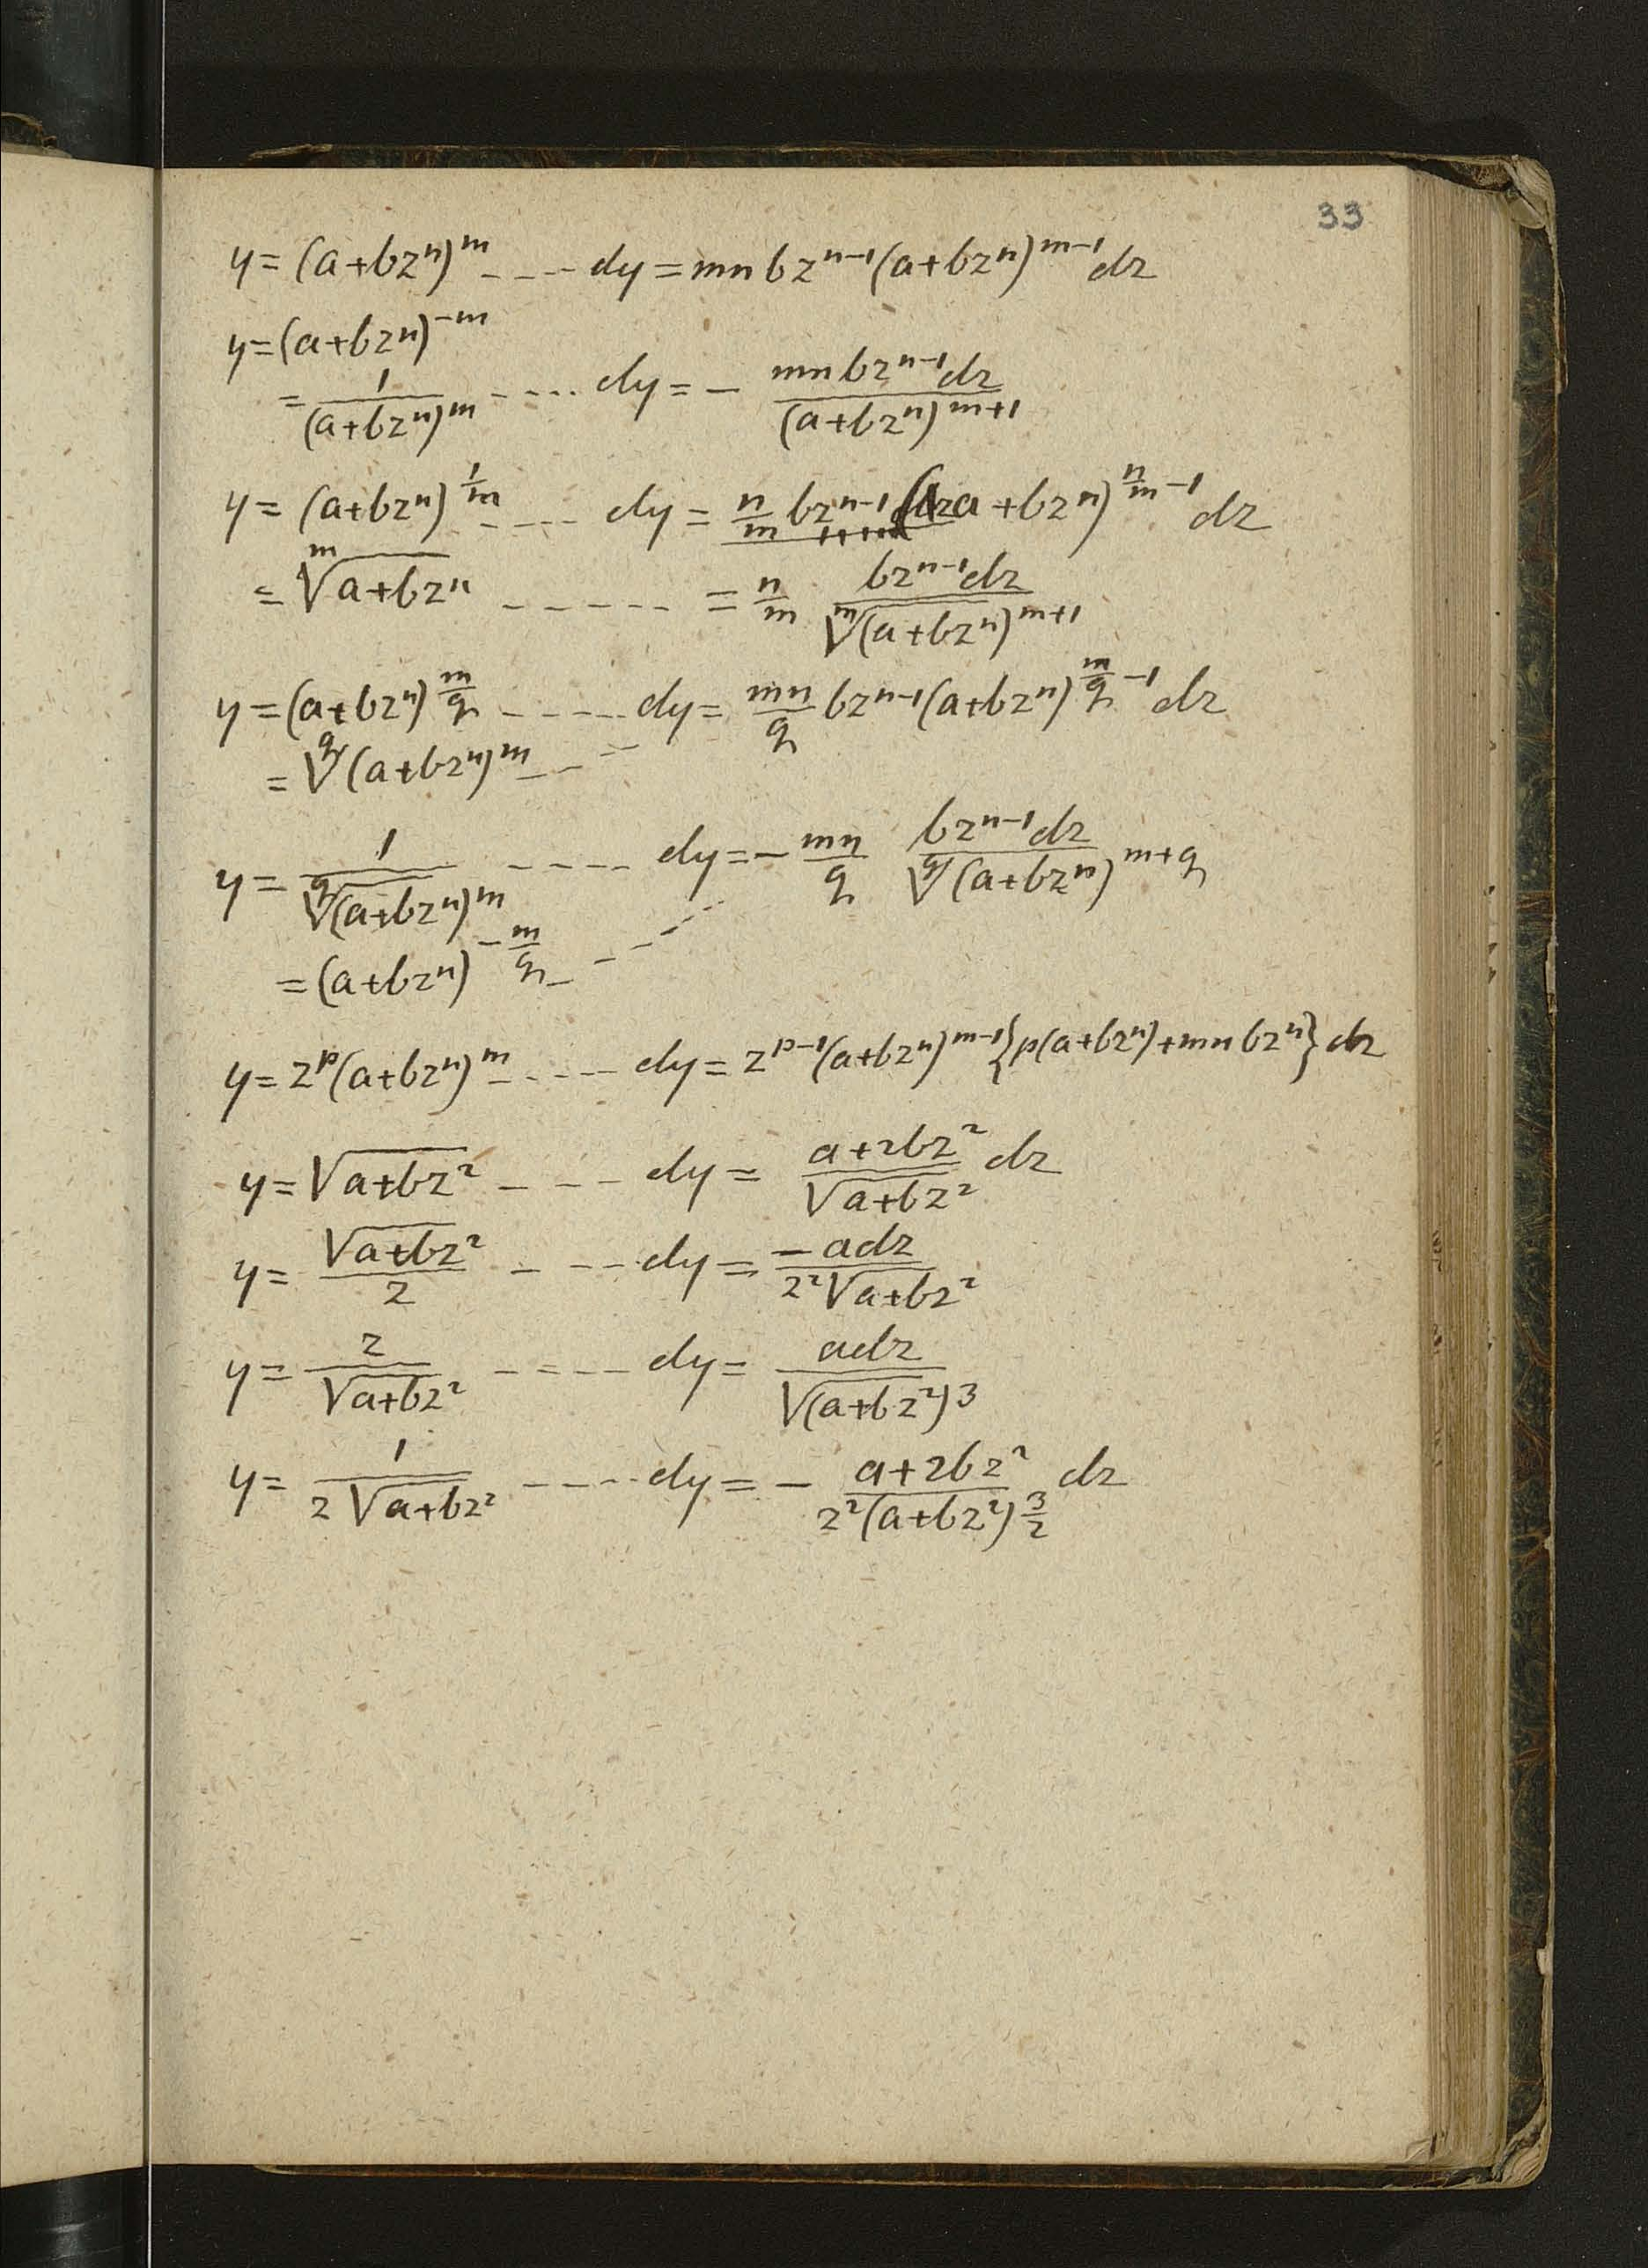 33
y = (a+bzⁿ)^m ---- dy = mnbz^{n-1}(a+bzⁿ)^{m-1}dz
y = (a+bzⁿ)^{-m}
= 1/(a+bzⁿ)^m ---- dy = - mnbz^{n-1}dz/(a+bzⁿ)^{m+1}
y = (a+bzⁿ)^{1/m} ---- dy = n/m bz^{n-1}(a+bzⁿ)^{n/m -1}dz
= ᵐ√(a+bzⁿ) ------ = n/m bz^{n-1}dz/ᵐ√(a+bzⁿ)^{m+1}
y = (a+bzⁿ)^{m/q} ----- dy = mn/q bz^{n-1}(a+bzⁿ)^{m/q -1}dz
= ^q√(a+bzⁿ)^m ---
y = 1/^q√(a+bzⁿ)^m ---- dy = - mn/q bz^{n-1}dz/^q√(a+bzⁿ)^{m+q}
= (a+bzⁿ)^{-m/q} ----
y = z^p(a+bzⁿ)^m ----- dy = z^{p-1}(a+bzⁿ)^{m-1}{p(a+bzⁿ)+mnbzⁿ}dz
y = √(a+bz²) ---- dy = (a+2bz²)/√(a+bz²) dz
y = √(a+bz²)/z ---- dy = -adz/z²√(a+bz²)
y = z/√(a+bz²) ----- dy = adz/√(a+bz²)³
y = 1/z√(a+bz²) ---- dy = - (a+2bz²)/z²(a+bz²)^{3/2} dz